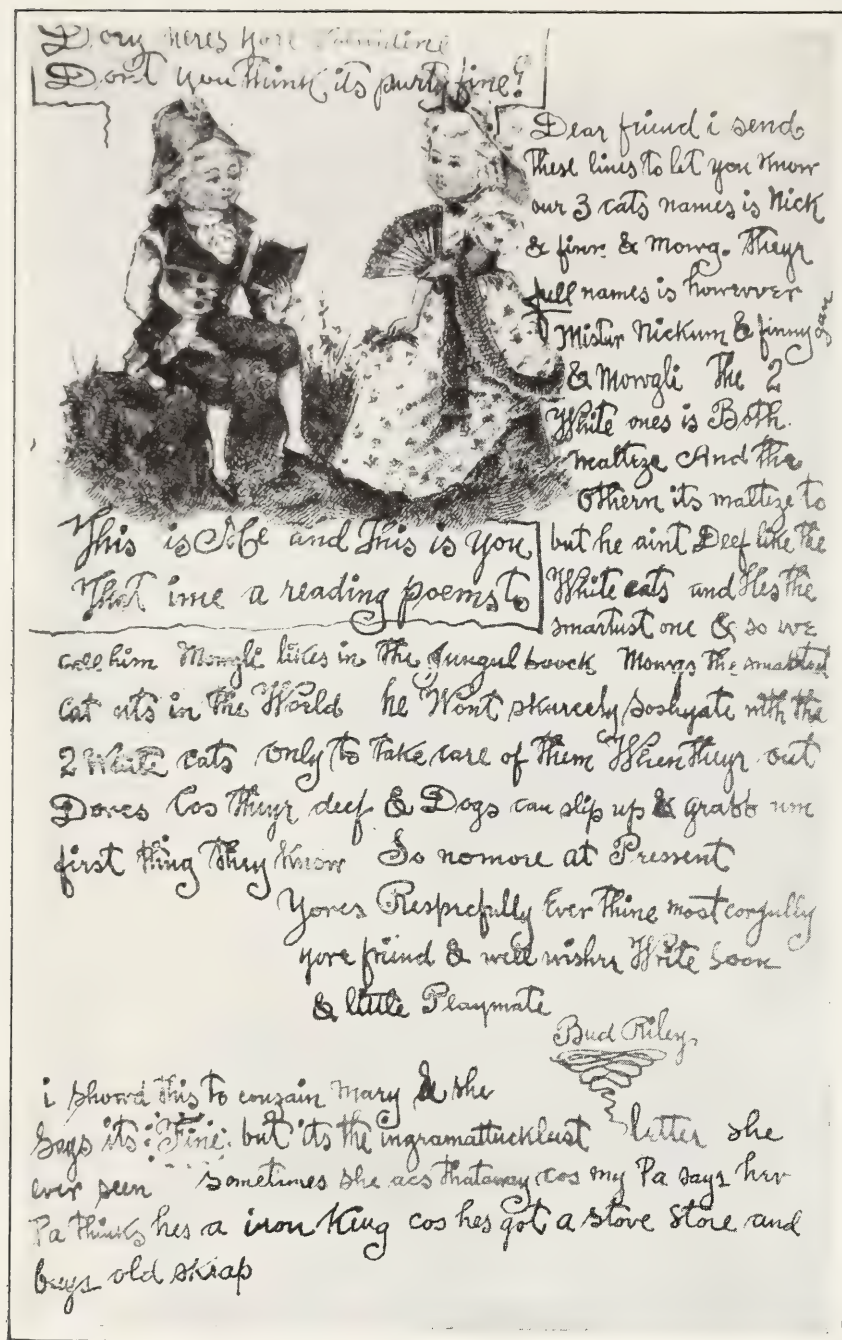 Dory heres yore
Dont you think its purty fine?
Dear friend i send
These lines to let you know
our 3 cats names is Nick
& finn & Mowg. Theyr
full names is howerver
Mister Nickum & finnygan
& Mowgli The 2
White ones is Both
malteze And the
Othern its malteze to
but he aint Deef like the
White cats and Hes the
smartust one & so we
This is Me and This is you
That ime a reading poems to
call him Mowgli likes in The Jungul boock Mowgs the smartest
Cat uts in the World he Wont skurcely soshyate with the
2 White cats only to take care of them When theyr out
Dores Cos theyr deef & Dogs can slip up & grabb um
first thing they know So nomore at Pressent
Yores Respecfully Ever thine most corgully
yore friend & well wisher Write soon
& little Playmate
Bud Riley
i showd this to couzain Mary & she
Says its :Fine: but its the ingramattucklust letter she
ever seen sometimes she acs thataway cos my Pa says her
Pa thinks hes a iron King cos hes got a stove store and
buys old skrap